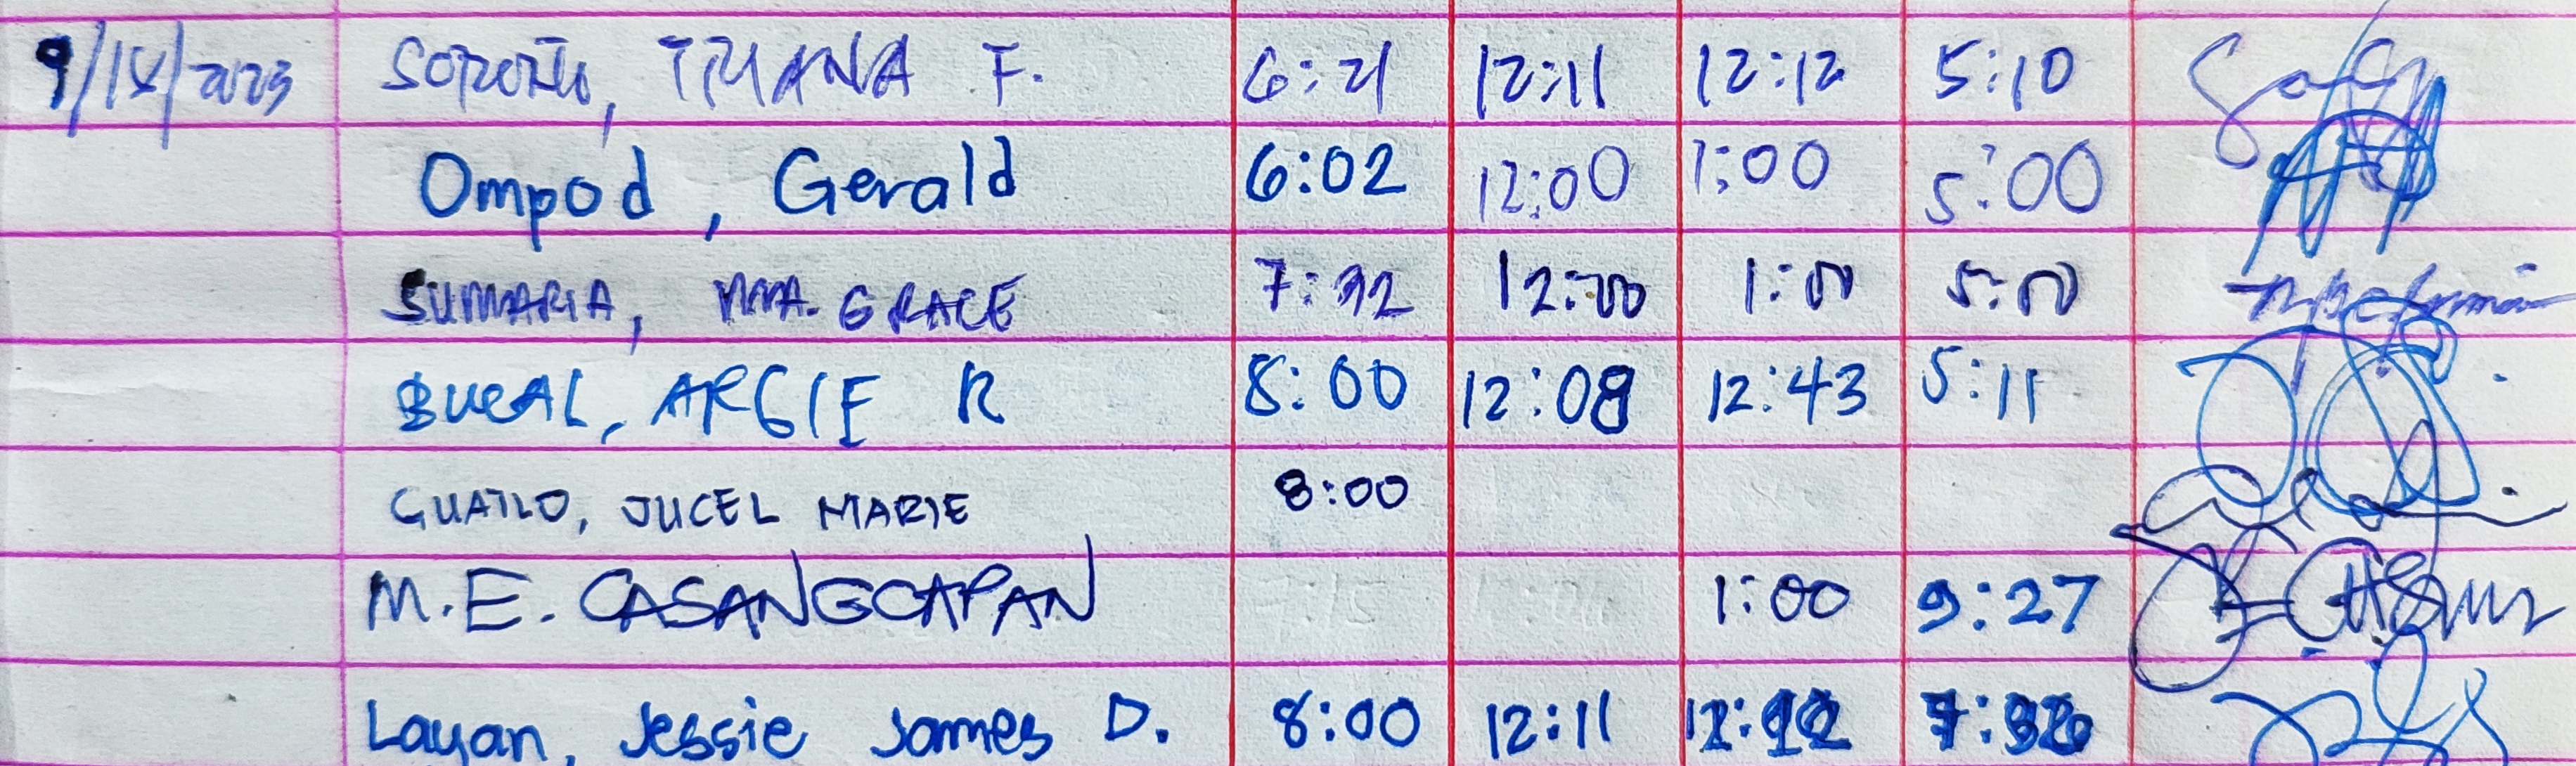 9/14/2023 TRIANA F. 6:21 12:11 12:12 5:10
Ompod, Gerald 6:02 12:00 1:00 5:00
SUMARIA, MA. GRACE 7:32 12:00 1:00 5:00
BUCAL, ARGIE R 8:00 12:08 12:43 5:11
GUATLO, JUCEL MARIE 8:00
M.E. CASANGCAPAN 1:00 9:27
Layan, Jessie James D. 8:00 12:11 12:12